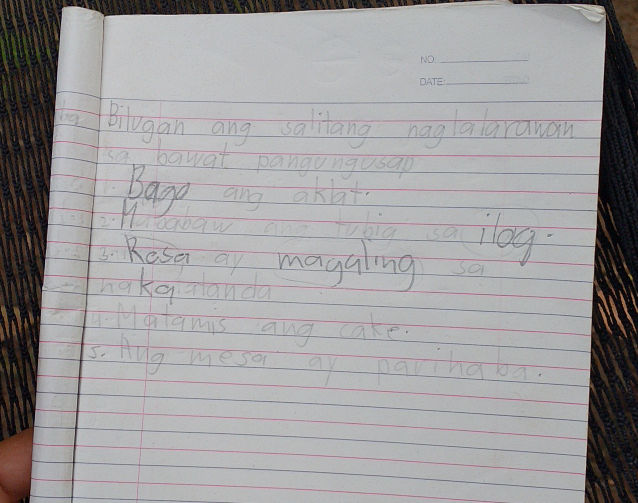 NO.
DATE:
Bilugan ang salitang naglalarawan
sa bawat pangungusap
1. Bago ang aklat.
2. Mababaw ang tubig sa ilog.
3. Rosa ay magaling sa
4. Matamis ang cake.
5. Ang mesa ay parihaba.